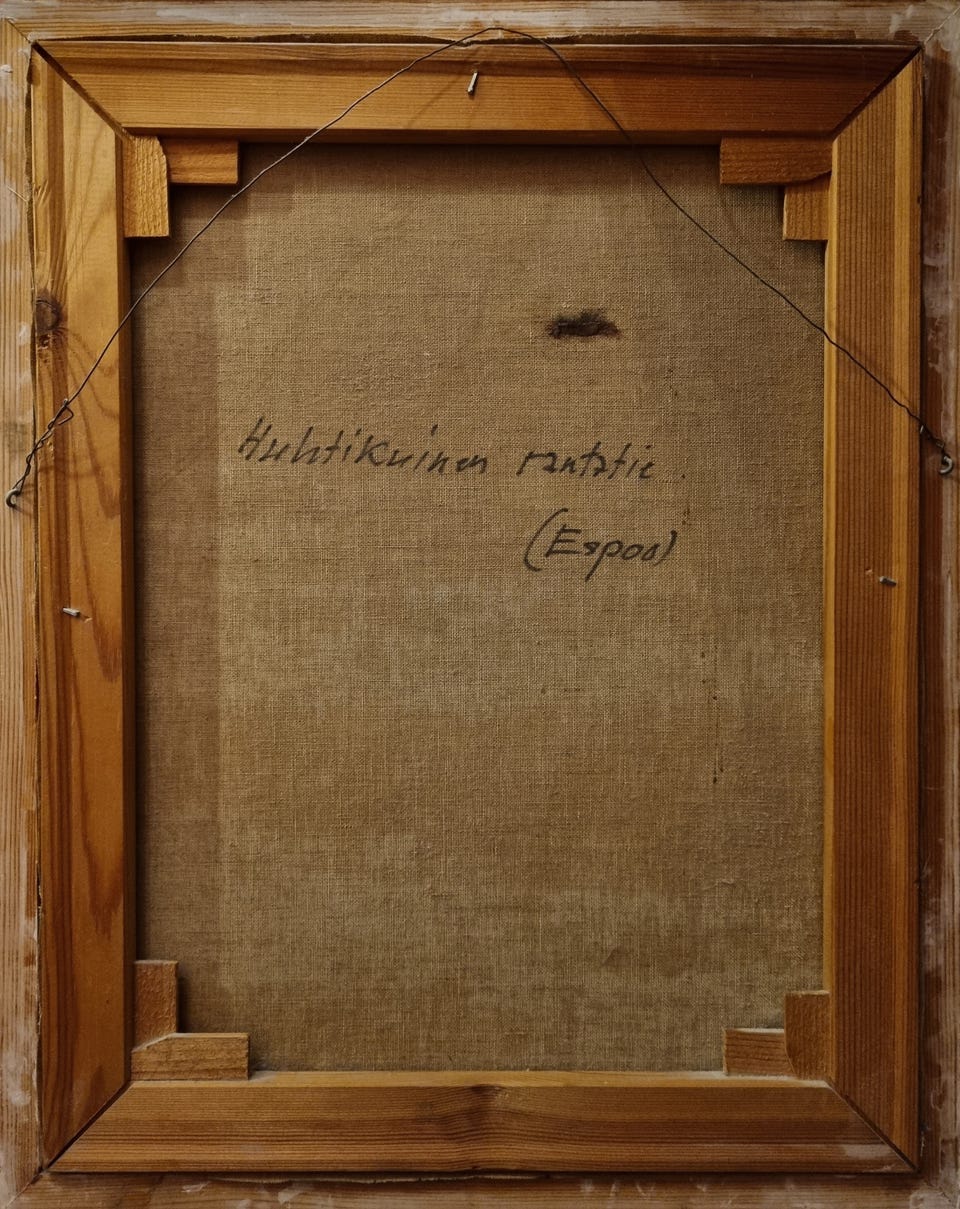 Huhtikuinen rantatie.
(Espoo)